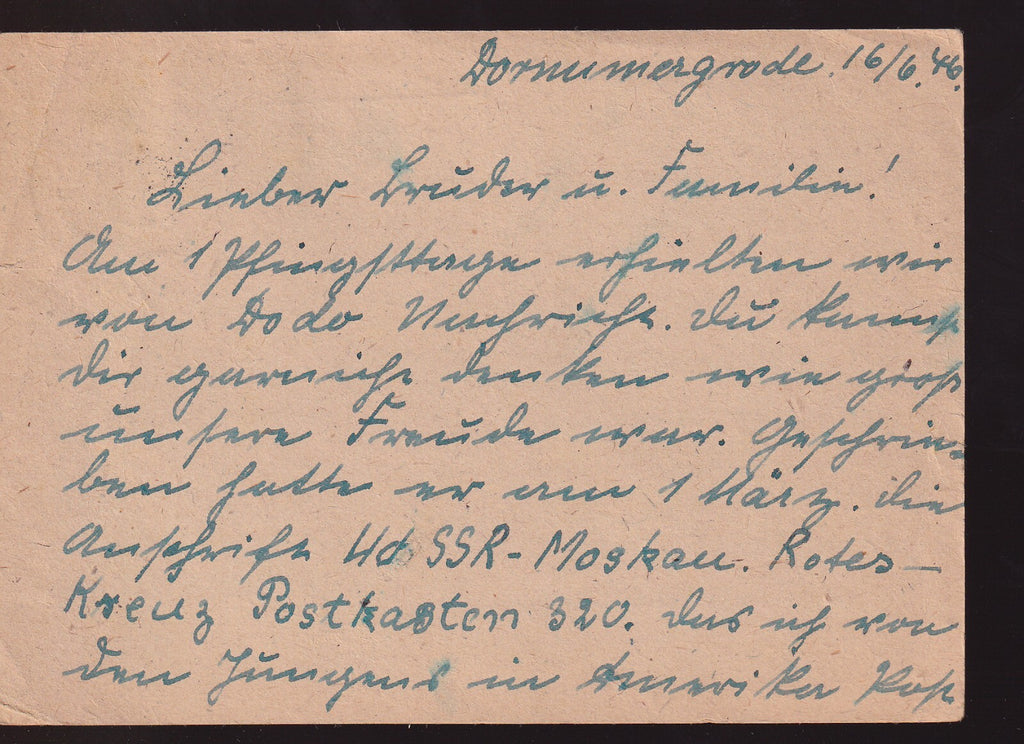 Dornumergrode. 16/6.46.
Lieber Bruder u. Familie!
Am 1 Pfingsttage erhielten wir
von Dodo Nachricht. Du kannst
dir garnicht denken wie groß
unsere Freude war. Geschrie-
ben hatte er am 1 März. die
Anschrift UdSSR - Moskau. Rotes-
Kreuz Postkasten 320. das ich von
den Jungens in Amerika Post